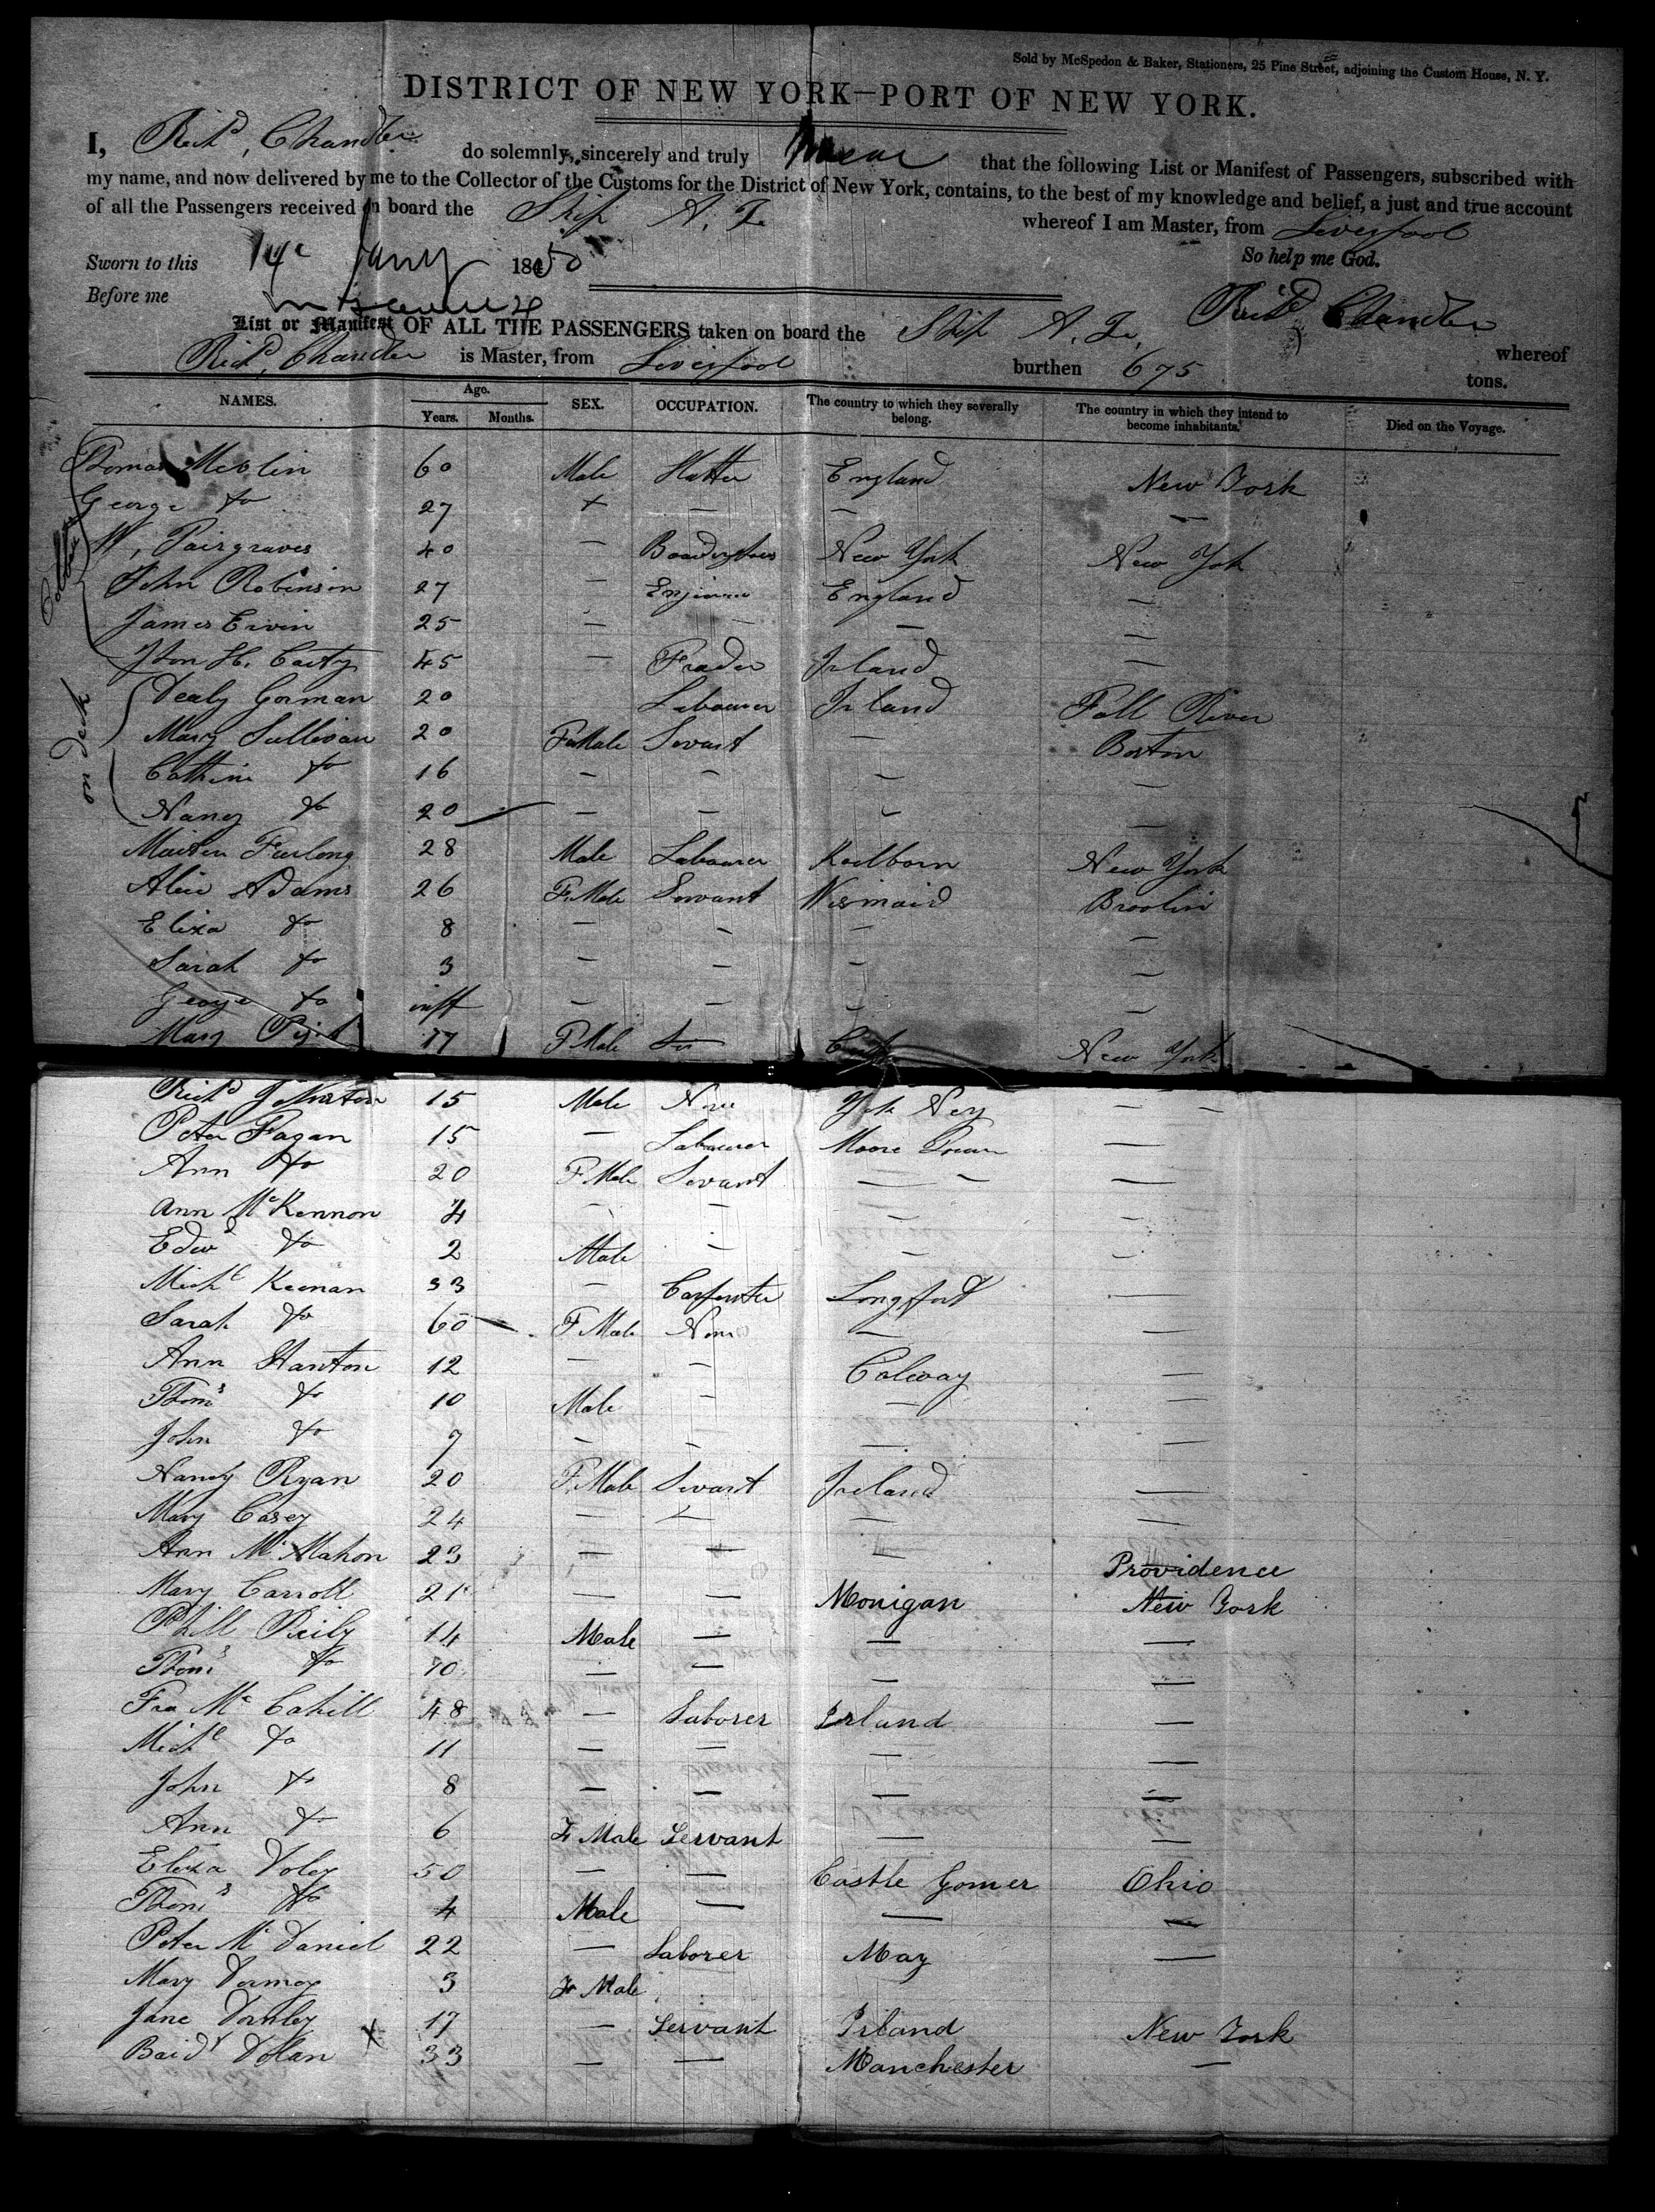 Sold by McSpedon & Baker, Stationers, 25 Pine Street, adjoining the Custom House, N. Y.
DISTRICT OF NEW YORK—PORT OF NEW YORK.
I, Richd, Chandler do solemnly, sincerely and truly swear that the following List or Manifest of Passengers, subscribed with
my name, and now delivered by me to the Collector of the Customs for the District of New York, contains, to the best of my knowledge and belief, a just and true account
of all the Passengers received on board the Ship A. Z. whereof I am Master, from Liverpool
Sworn to this 14 Jany 1850 So help me God.
Before me Richd Chandler
List or Manifest OF ALL THE PASSENGERS taken on board the Ship A. Z. whereof
Richd, Chandler is Master, from Liverpool burthen 675 tons.
NAMES. Age. Years. Months. SEX. OCCUPATION. The country to which they severally belong. The country in which they intend to become inhabitants. Died on the Voyage.
Thomas 60 Male Hatter England New York
George Do 27 + — — —
W, Pairgraves 40 — New York New Yok
John Robinson 27 — England —
James Ervin 25 — — — —
Jhon H. Carty 45 — Trader Irland —
on deck
Dealy Gorman 20 Labourer Irland Fall River
Mary Sullivan 20 FMale Sevant — Boston
Cathrine Do 16 — — — —
Nancy Do 20 — — — —
Marten Furlong 28 Male Labourer New York
Alice Adams 26 F.Male Servant Broolin
Eliza Do 8 — — — —
Sarah Do 3 — — — —
George Do inff — — — —
Mary 17 FMale Do New York
Richd Johnston 15 Male None — —
Peter Fagan 15 — Labourer Moore Town —
Ann Do 20 F.Male Sevant — — —
Ann McKennon 4 — — — —
Edwd Do 2 Male — — —
Michl Keenan 33 — Carpenter Longford —
Sarah Do 60 F Male None — —
Ann Stanton 12 — — Calway —
Thoms Do 10 Male — —
John Do 7 — — — —
Nancy Ryan 20 F.Male Sevant Ireland —
Mary Casey 24 — — — —
Ann McMahon 23 — — — Providence
Mary Carroll 21 — — Monigan New York
Phill Reily 14 Male — — —
Thoms Do 10 — — — —
Fra McCahill 48 — Laborer Irland —
Michl Do 11 — — — —
John Do 8 — — —
Ann Do 6 F Male Servant — —
Eleza Foley 50 — — Castle Gomer Ohio
Thoms Do 4 Male — — —
Peter McDaniel 22 — Laborer May —
Mary 3 F Male
Jane X 17 — Servant Irland New York
Dolan 33 — — Manchester —